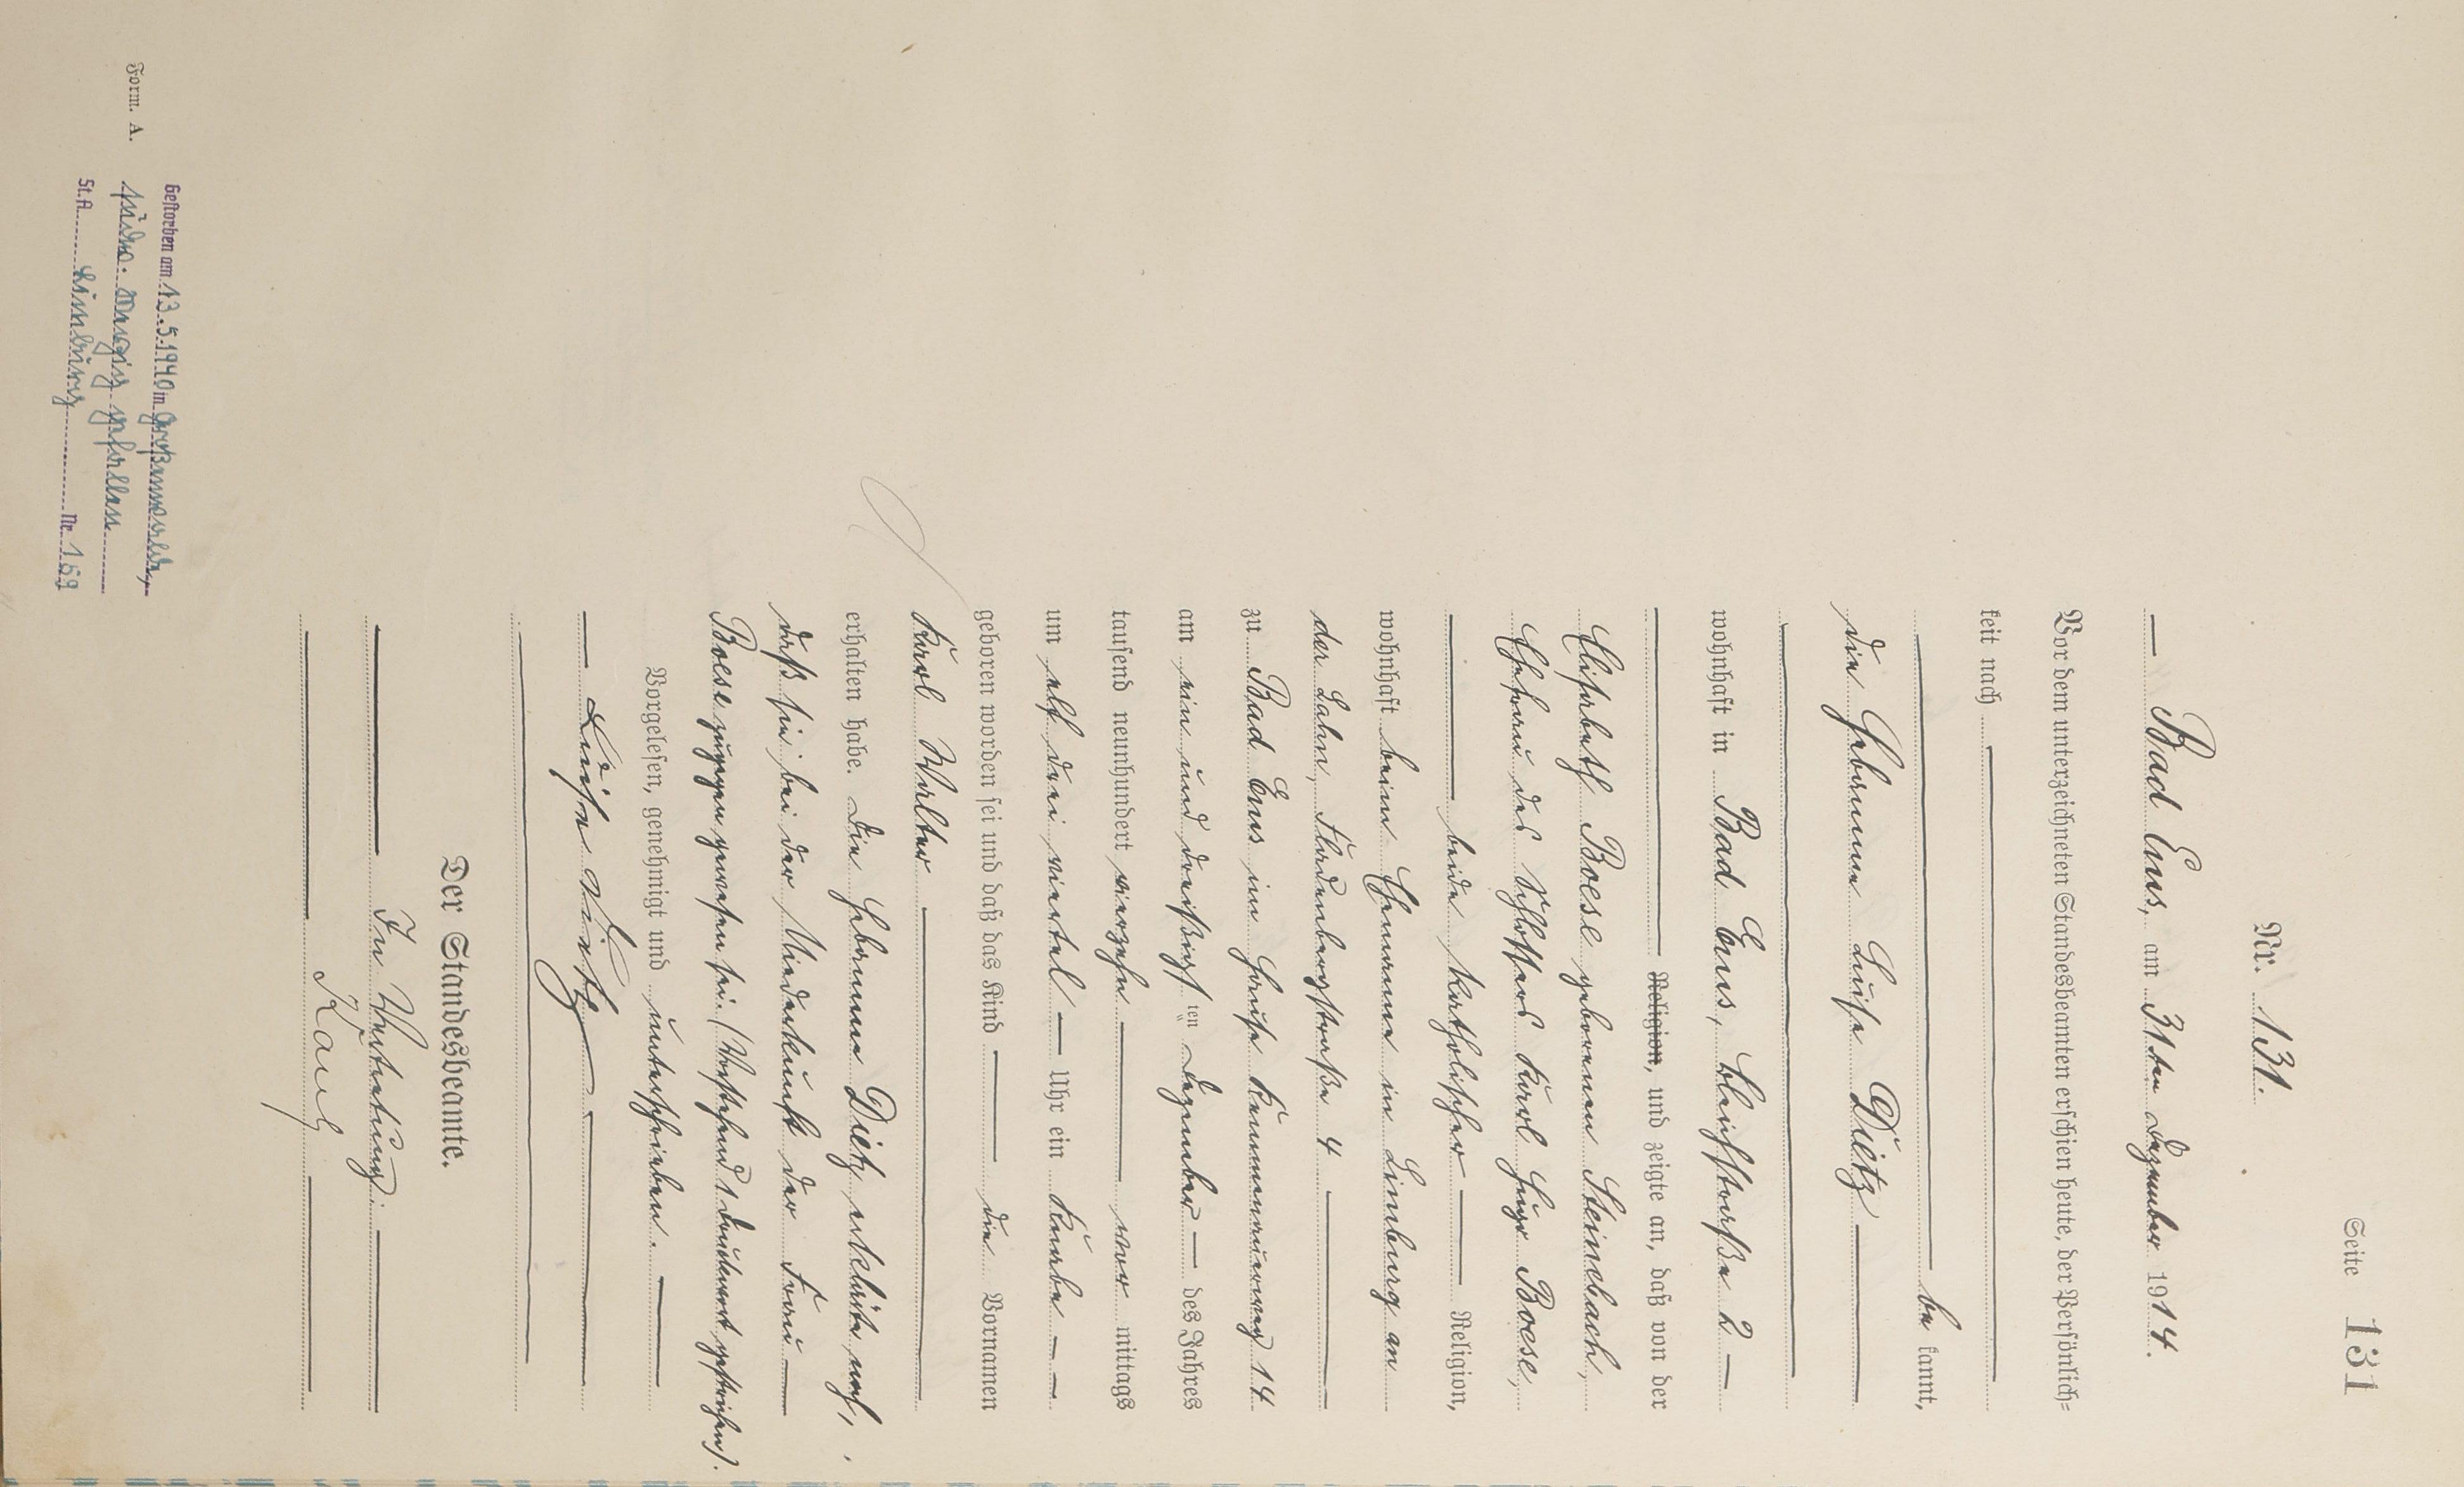 Seite 131
Nr. 131.
Bad Ems, am 31ten Dezember 1914.
Vor dem unterzeichneten Standesbeamten erschien heute, der Persönlich-
keit nach
be kannt,
die Hebamme Luise Dietz
wohnhaft in Bad Ems, Bleichstraße 2
Religion, und zeigte an, daß von der
Elisabeth Boese geborenen Steinebach,
Ehefrau des Schlossers Karl Hugo Boese,
beide katholischer Religion,
wohnhaft beim Ehemann in Limburg an
der Lahn, Fladenbergstraße 4
zu Bad Ems im Hause Kemmenauerweg 14
am ein und dreißigsten Dezember des Jahres
tausend neunhundert vierzehn vor mittags
um elf drei viertel Uhr ein Knabe
geboren worden sei und daß das Kind die Vornamen
Karl Walter
erhalten habe. Die Hebamme Dietz erklärte noch,
daß sie bei der Niederkunft der Frau
Boese zugegen gewesen sei. (Vorstehend 1 Druckwort gestrichen).
Vorgelesen, genehmigt und unterschrieben.
Luise Dietz
Der Standesbeamte.
In Vertretung.
Kaul
Form. A.
Gestorben am 13.5.1940 in
gefallen
St.A. Limburg Nr. 169